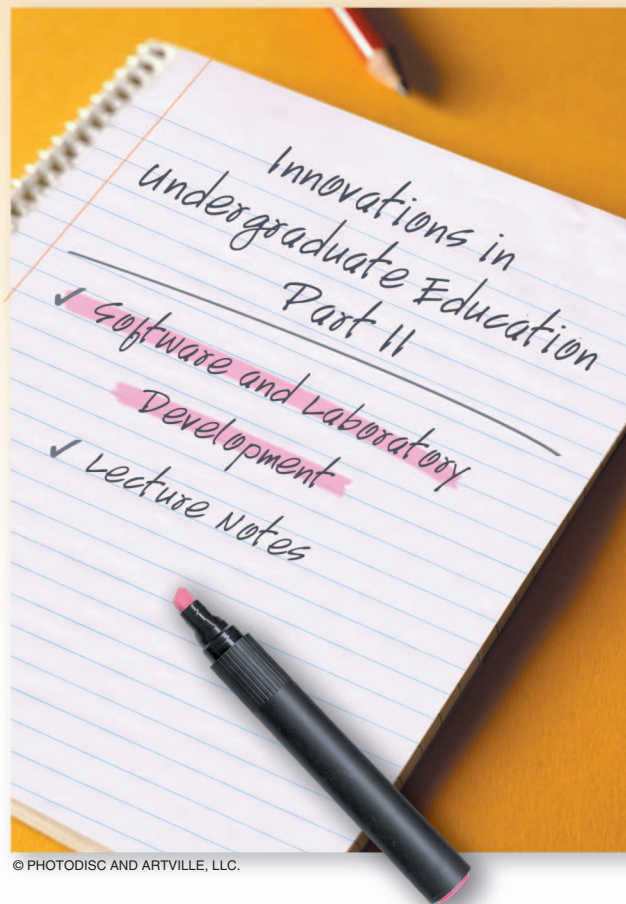 Innovations in
Undergraduate Education
Part II
✓ Software and Laboratory
Development
✓ Lecture Notes
© PHOTODISC AND ARTVILLE, LLC.